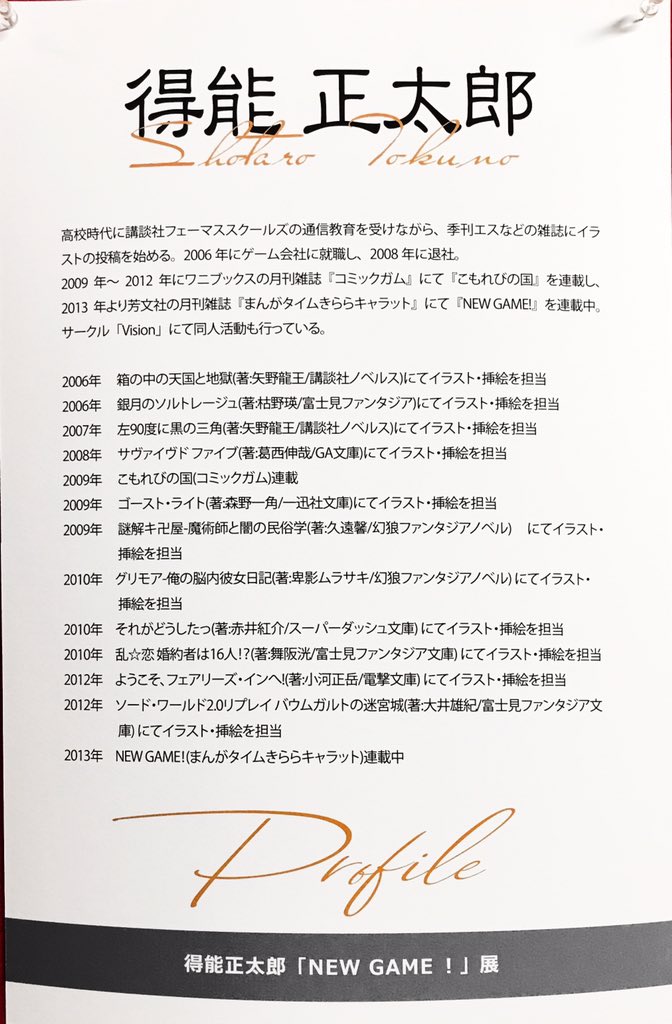 得能 正太郎
Shotaro Tokuno
高校時代に講談社フェーマススクールズの通信教育を受けながら、季刊エスなどの雑誌にイラ
ストの投稿を始める。2006 年にゲーム会社に就職し、2008 年に退社。
2009 年～ 2012 年にワニブックスの月刊雑誌『コミックガム』にて『こもれびの国』を連載し、
2013 年より芳文社の月刊雑誌『まんがタイムきららキャラット』にて『NEW GAME!』を連載中。
サークル「Vision」にて同人活動も行っている。
2006年 箱の中の天国と地獄(著:矢野龍王/講談社ノベルス)にてイラスト・挿絵を担当
2006年 銀月のソルトレージュ(著:枯野瑛/富士見ファンタジア)にてイラスト・挿絵を担当
2007年 左90度に黒の三角(著:矢野龍王/講談社ノベルス)にてイラスト・挿絵を担当
2008年 サヴァイヴド ファイブ(著:葛西伸哉/GA文庫)にてイラスト・挿絵を担当
2009年 こもれびの国(コミックガム)連載
2009年 ゴースト・ライト(著:森野一角/一迅社文庫)にてイラスト・挿絵を担当
2009年 謎解キ卍屋-魔術師と闇の民俗学(著:久遠馨/幻狼ファンタジアノベル) にてイラスト・
挿絵を担当
2010年 グリモア-俺の脳内彼女日記(著:卑影ムラサキ/幻狼ファンタジアノベル) にてイラスト・
挿絵を担当
2010年 それがどうしたっ(著:赤井紅介/スーパーダッシュ文庫) にてイラスト・挿絵を担当
2010年 乱☆恋 婚約者は16人!?(著:舞阪洸/富士見ファンタジア文庫) にてイラスト・挿絵を担当
2012年 ようこそ、フェアリーズ・インへ!(著:小河正岳/電撃文庫) にてイラスト・挿絵を担当
2012年 ソード・ワールド2.0リプレイ バウムガルトの迷宮城(著:大井雄紀/富士見ファンタジア文
庫) にてイラスト・挿絵を担当
2013年 NEW GAME!(まんがタイムきららキャラット)連載中
Profile
得能正太郎「NEW GAME ！」展